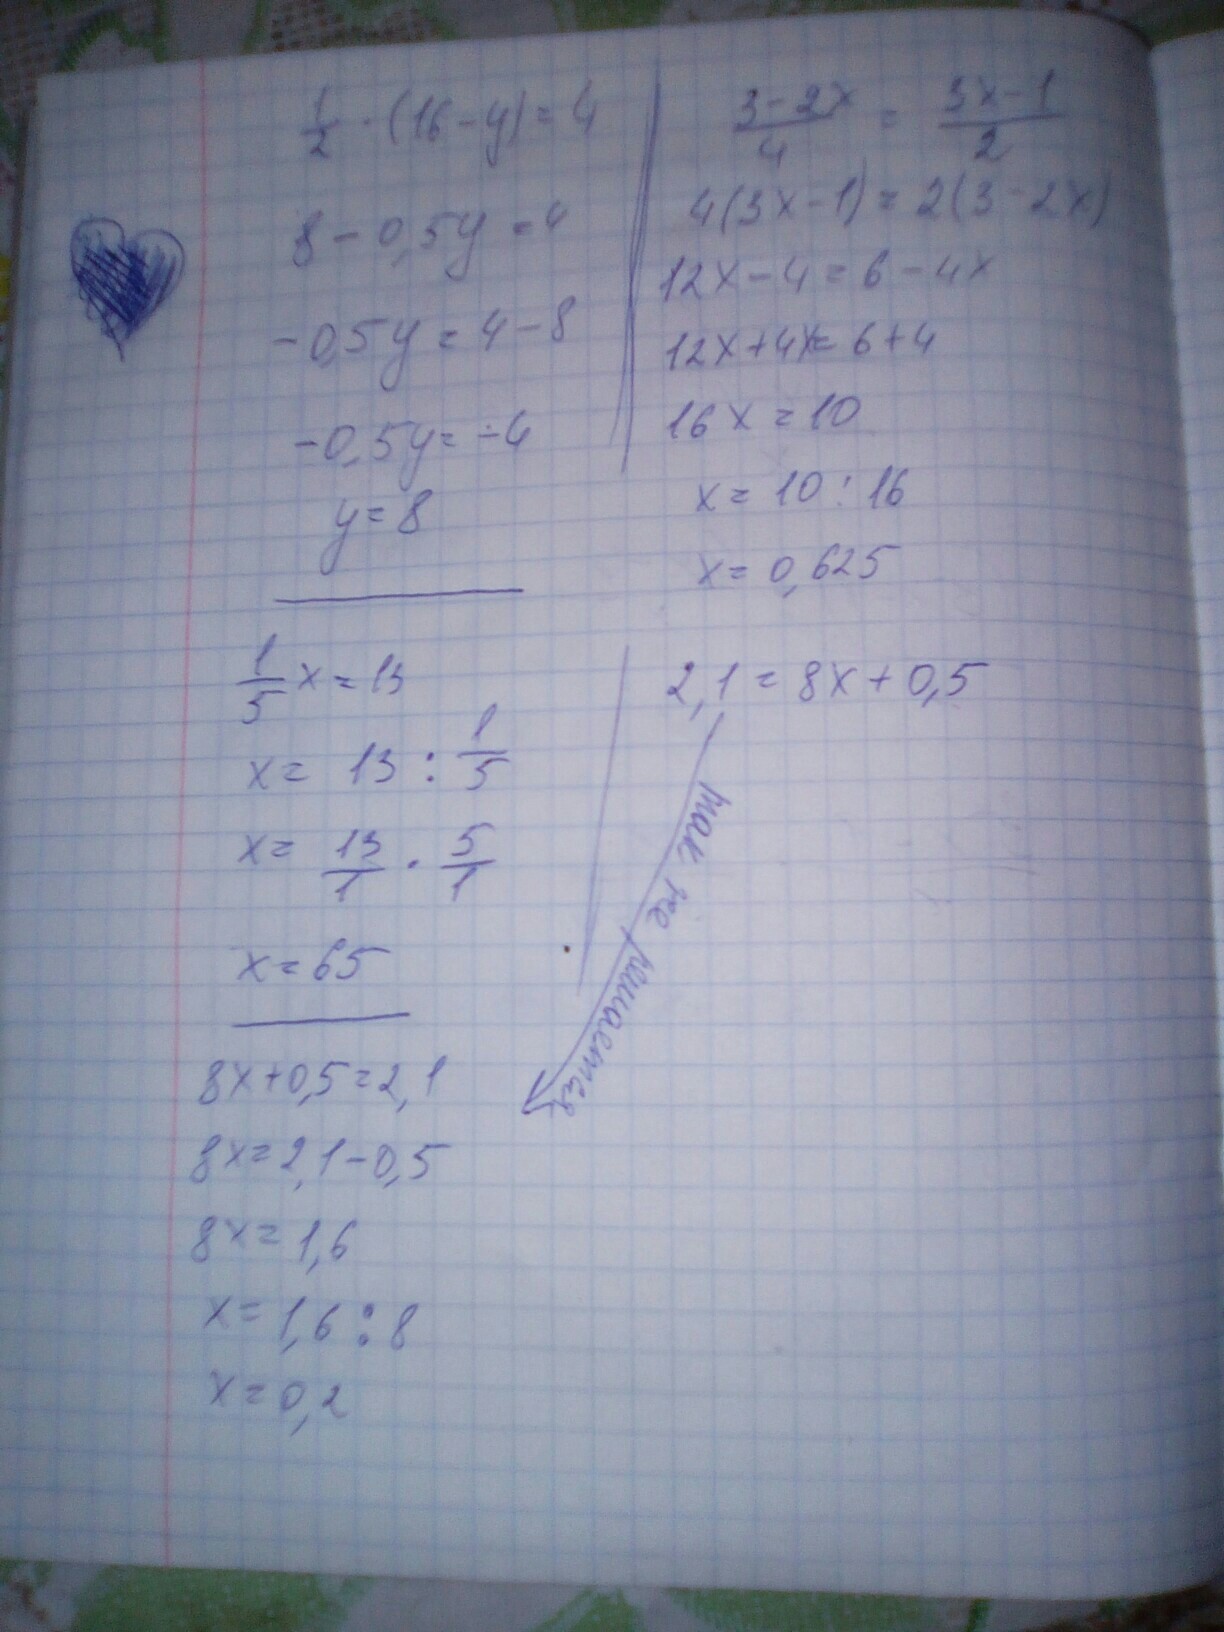 1/2 · (16-y)=4
8-0,5y=4
-0,5y=4-8
-0,5y=-4
y=8
(3-2x)/4 = (3x-1)/2
4(3x-1)=2(3-2x)
12x-4=6-4x
12x+4x=6+4
16x=10
x=10:16
x=0,625
1/5 x=13
x= 13 : 1/5
x= 13/1 · 5/1
x=65
2,1=8x+0,5
так же решается
8x+0,5=2,1
8x=2,1-0,5
8x=1,6
x=1,6:8
x=0,2